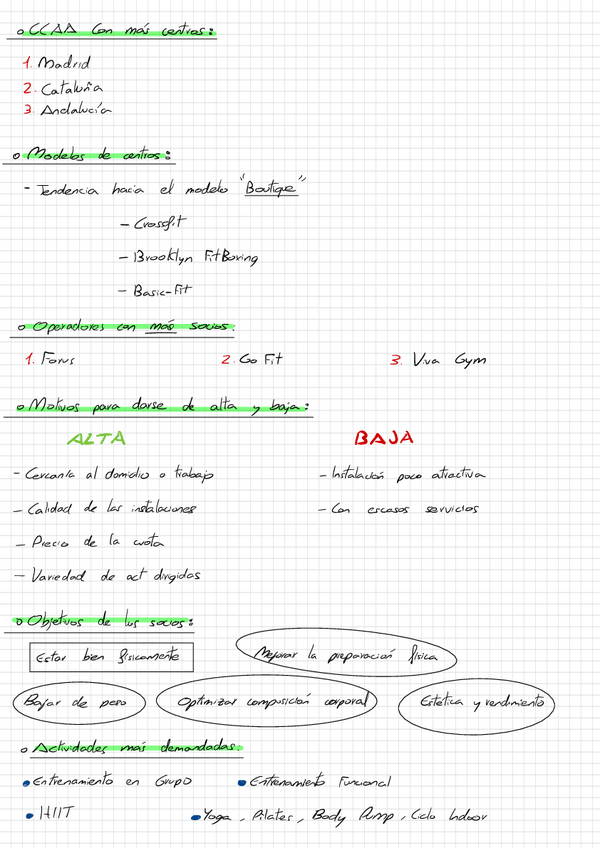 o CCAA Con más centros:
1. Madrid
2. Cataluña
3. Andalucía
o Modelos de centros:
- Tendencia hacia el modelo "Boutique"
- Crossfit
- Brooklyn FitBoxing
- Basic-Fit
o Operadores con más socios:
1. Forus 2. Go Fit 3. Viva Gym
o Motivos para darse de alta y baja:
ALTA BAJA
- Cercanía al domicilio o trabajo - Instalación poco atractiva
- Calidad de las instalaciones - Con escasos servicios
- Precio de la cuota
- Variedad de act dirigidas
o Objetivos de los socios:
Estar bien físicamente Mejorar la preparación física
Bajar de peso Optimizar composición corporal Estética y rendimiento
o Actividades más demandadas:
• Entrenamiento en Grupo • Entrenamiento Funcional
• HIIT • Yoga, Pilates, Body Pump, Ciclo Indoor